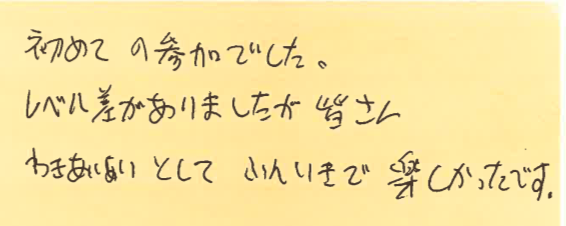 初めての参加でした。
レベル差がありましたが皆さん
わきあいあいとしてふんいきで楽しかったです。